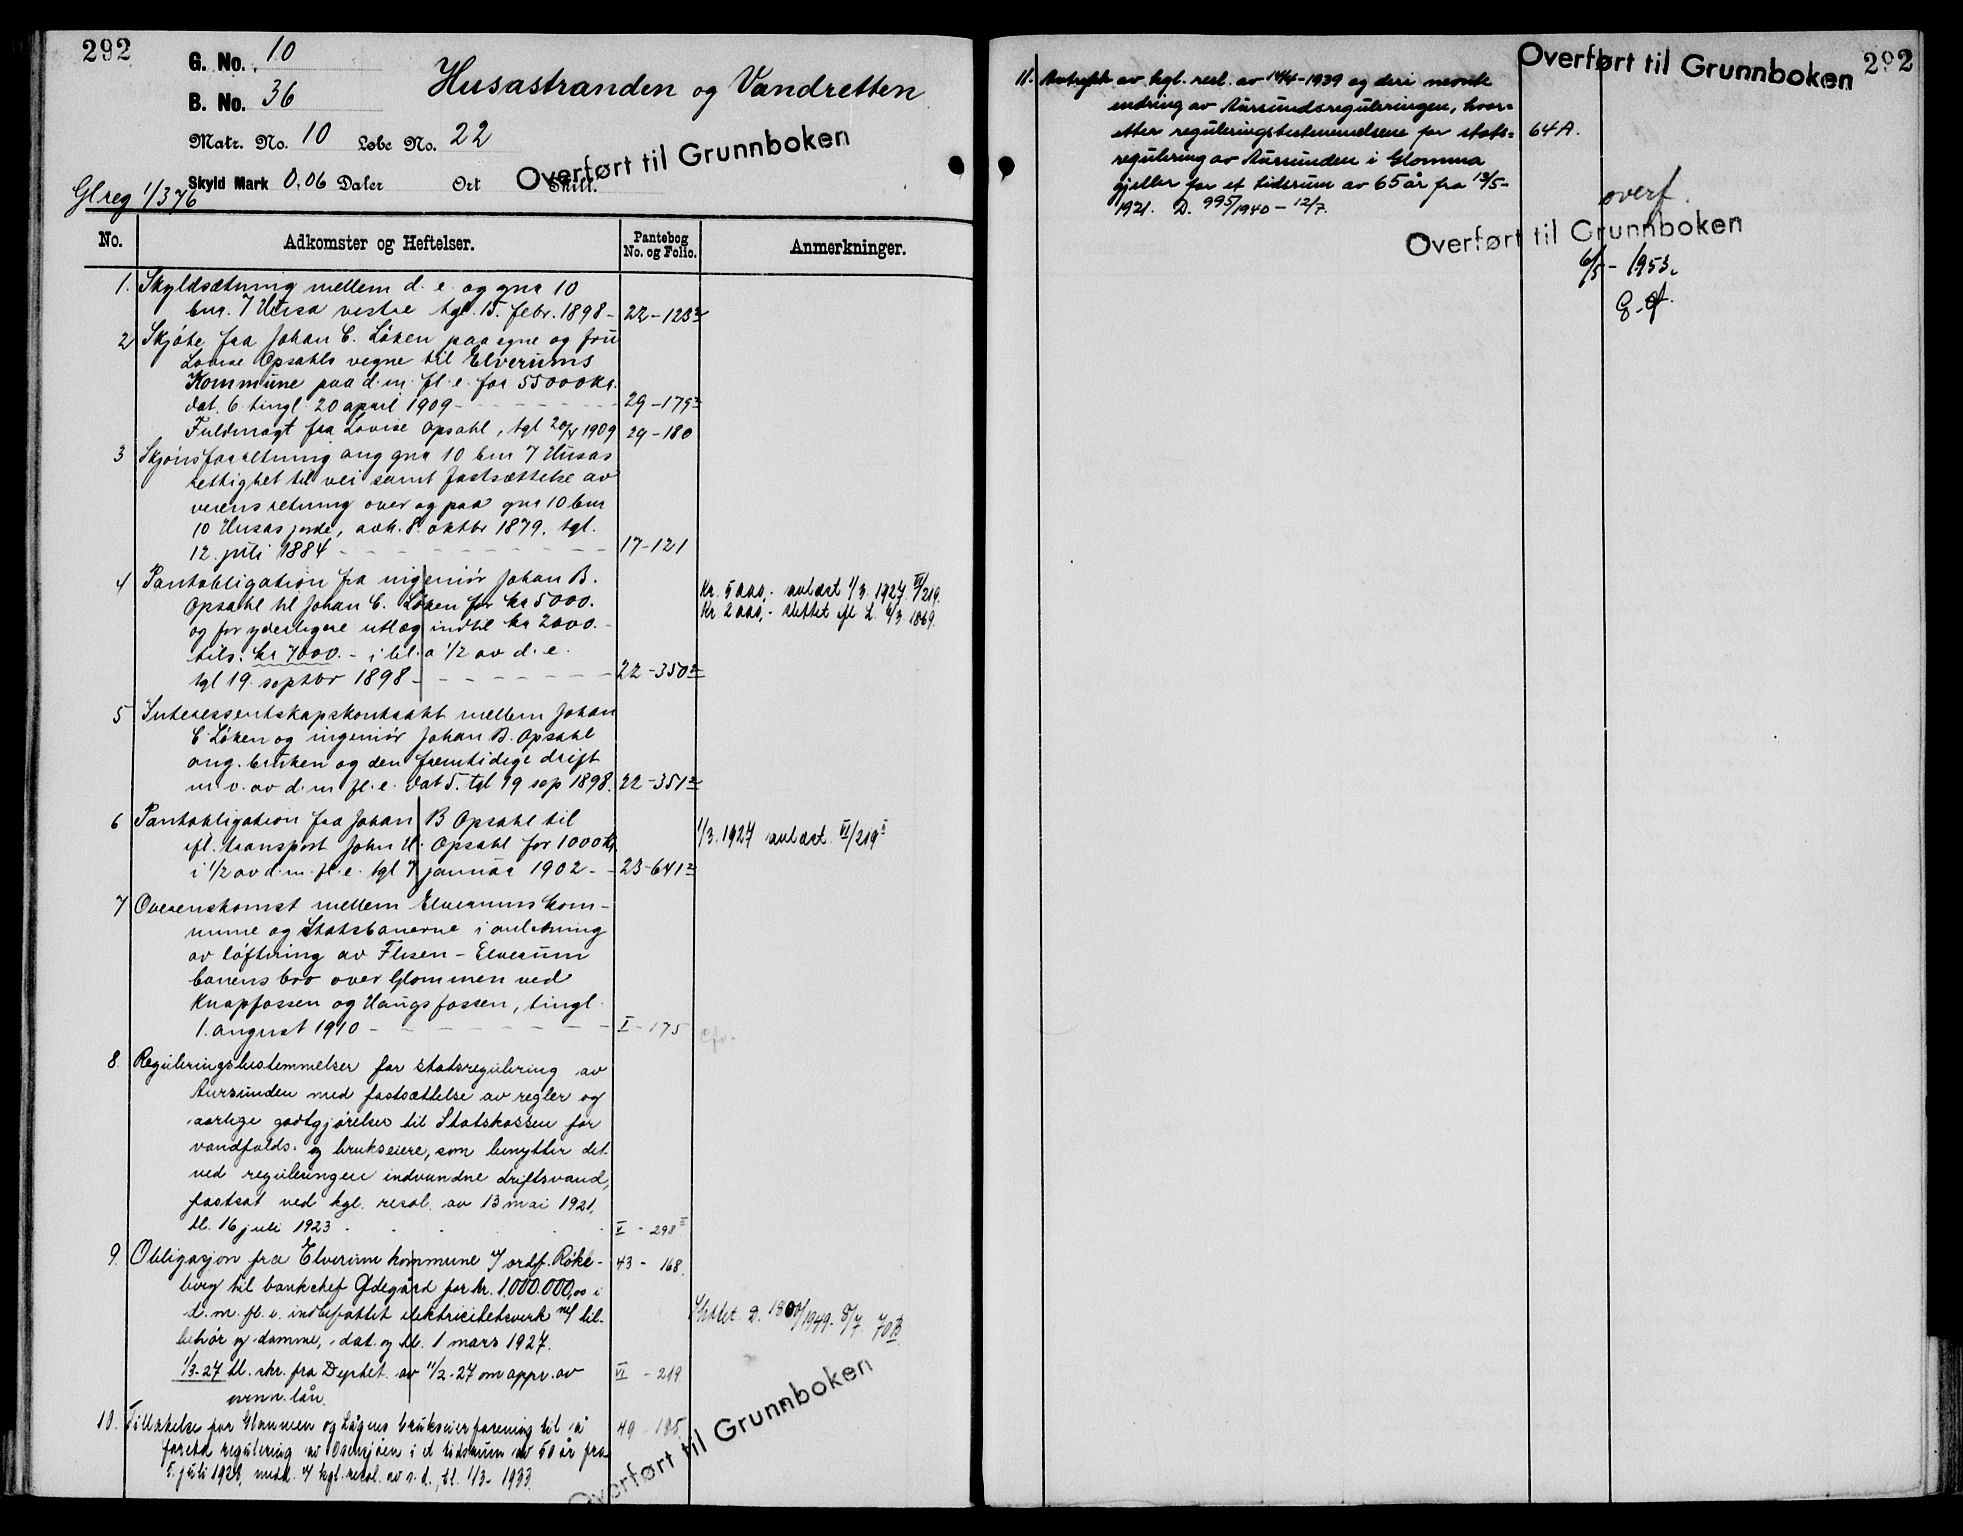 292
G. No. 10
B. No. 36
Husastranden og Vandretten
Matr. No. 10 Løbe No. 22
Overført til Grunnboken
Skyld Mark 0,06 Daler Ort Skill.
Gl reg 1/376
No. Adkomster og Heftelser. Pantebog No. og Folio. Anmerkninger.
1. Skyldsætning mellem d. e. og gnr 10
bnr. 7 Husa vestre tgl. 15. febr. 1898 - 22-123
2 Skjøte fra Johan C. Løken paa egne og fru
Lovise Opsahls vegne til Elverums
Kommune paa d. m. fl. e. for 55000 kr.
dat. 6. tingl. 20 april 1909 - 29-179
Fuldmagt fra Lovise Opsahl, tgl 20/4 1909 29-180
3 Skjønsforretning ang gnr 10 bnr 7 Husas
rettighet til vei samt fastsættelse av
veiens retning over og paa gnr 10 bnr
10 Husas jorde, avh. 8. oktbr 1879. tgl.
12. juli 1884 - 17-121
4 Pantobligation fra ingeniør Johan B.
Opsahl til Johan C. Løken for kr 5000.
og for yderligere utlæg indtil kr 2000. -
tils. kr 7000. - i bl. a 1/2 av d. e.
tgl 19. septbr 1898 - 22-350
Kr. 5000,- avlæst 1/3. 1927. VI/219.
Kr 2000,- slettet efl L. 6/3 1869.
5 Interessentskapskontrakt mellem Johan
C Løken og ingeniør Johan B. Opsahl
ang. bruken og den fremtidige drift
m. v. av d. m fl. e. dat 5. tgl 19 sep 1898. 22-351
6 Pantobligation fra Johan B Opsahl til
efl. transport John H. Opsahl for 1000 kr
i 1/2 av d. m. fl. e. tgl 7 januar 1902 - 23-641
1/3. 1927 avlæst VI/219
7 Overenskomst mellem Elverums kom-
mune og Statsbanerne i anledning
av løftning av Flisen - Elverum
banens bro over Glommen ved
Knapfossen og Haugsfossen, tingl.
1. august 1910 - I - 175
8. Reguleringsbestemmelser for statsregulering av
Aursunden med fastsættelse av regler og
aarlige godtgjørelser til Statskassen for
vandfalds- og brukseiere, som benytter det
ved reguleringen indvundne driftsvand,
fastsat ved kgl. resol. av 13 mai 1921,
tl. 16 juli 1923 V - 298
9. Obligasjon fra Elverum kommune v/ ordf. Røke-
berg til bankchef Ødegård for kr. 1.000.000,00 i
d. m. fl. e. indbefattet elektricitetsverk m/ til-
behør og damme, dat. og tl. 1 mars 1927. 43 - 168.
Slettet D. 1800/1949 - 8/7. 70B
1/3-27 tl. skr. fra Dept. av 11/2-27 om appr. av VI - 219
nevn. lån.
10. Tillatelse for Glommen og Lågens brukseierforening til å
foreta regulering av Osensjøen i et tidsrum av 50 år fra
5. juli 1929, medd. v/ kgl. resol. av s. d., tl. 1/3- 1933. 49 - 195.
Overført til Grunnboken
Overført til Grunnboken 292
11. Avtrykk av kgl. resl. av 14/4-1939 og deri nevnte
endring av Aursundsreguleringen, hvor-
etter reguleringsbestemmelsene for stats- 64A.
regulering av Aursunden i Glomma
gjeller for et tidsrum av 65 år fra 13/5-
1921. D. 995/1940 - 12/7.
overf.
Overført til Grunnboken
6/5 - 1953.